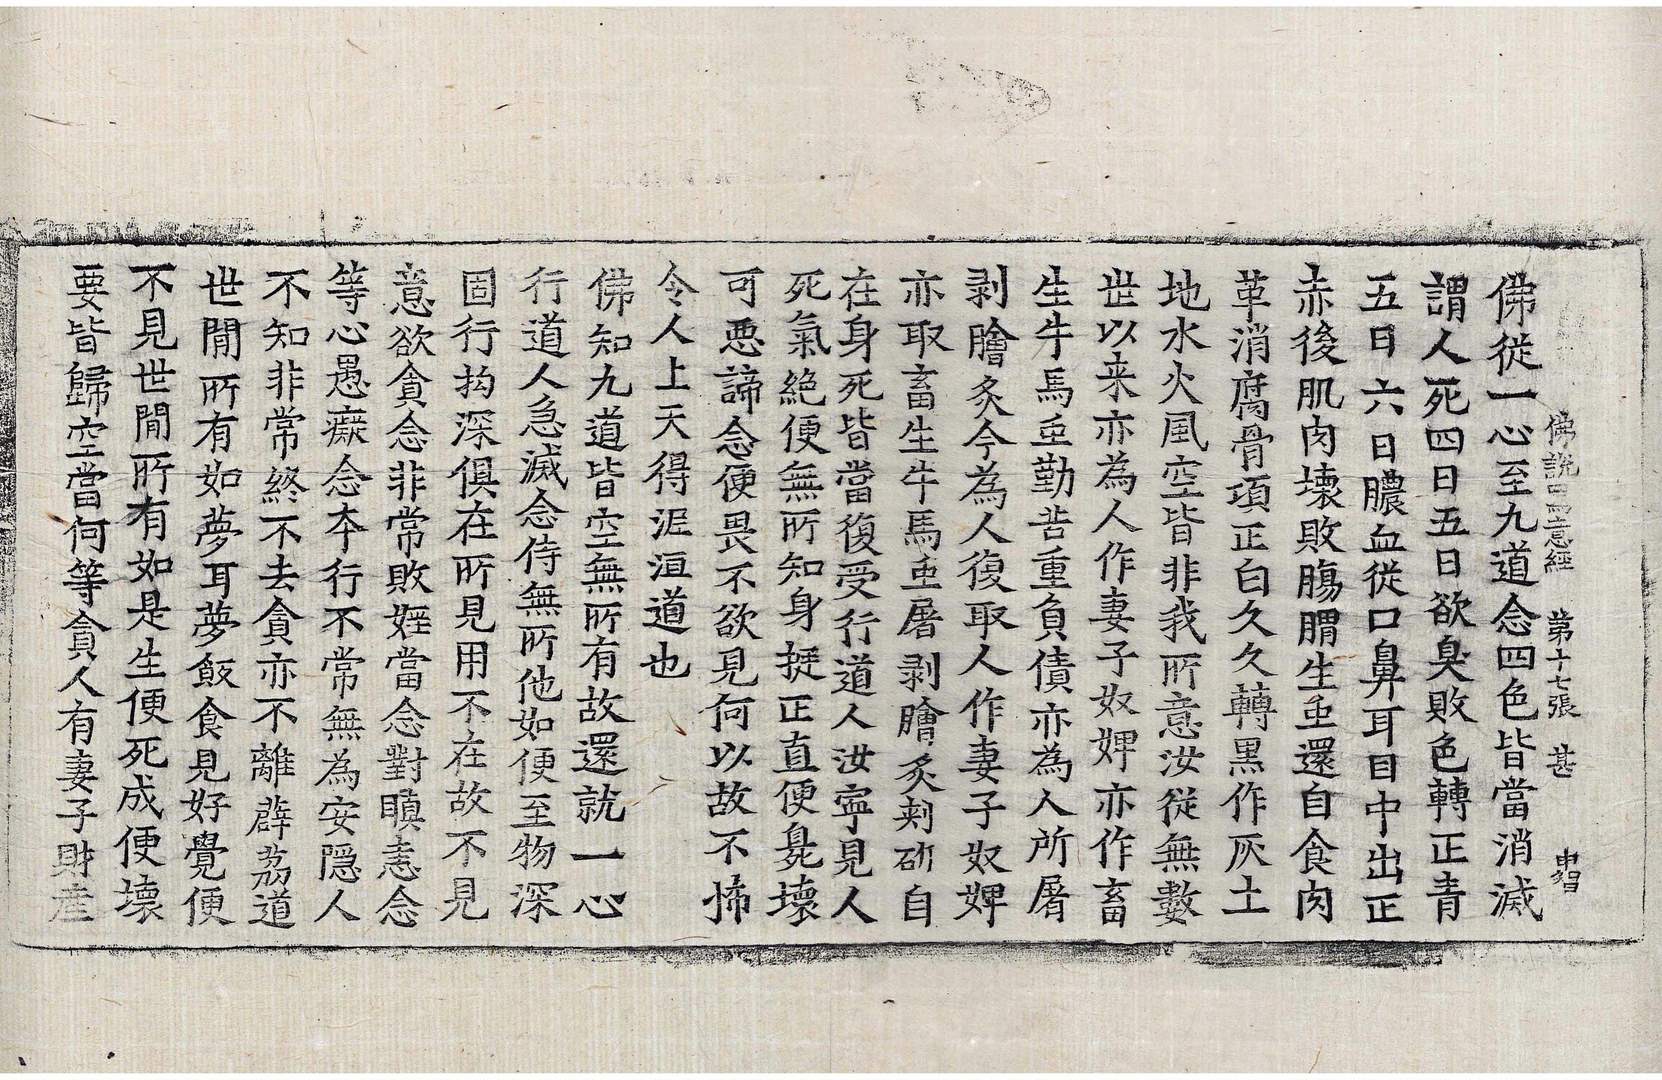 佛說罵意經 第十七張 甚 申留
佛從一心至九道念四色皆當消滅
謂人死四日五日欲臭敗色轉正青
五日六日膿血從口鼻耳目中出正
赤後肌肉壞敗膓胃生虫還自食肉
革消腐骨項正白久久轉黑作灰土
地水火風空皆非我所意汝從無數
世以来亦為人作妻子奴婢亦作畜
生牛馬虫勤苦重負債亦為人所屠
剥膾炙今為人復取人作妻子奴婢
亦取畜生牛馬虫屠剥膾炙刾斫自
在身死皆當復受行道人汝寧見人
死氣絶便無所知身挺正直便臰壞
可惡諦念便畏不欲見何以故不怖
令人上天得泥洹道也
佛知九道皆空無所有故還就一心
行道人急滅念侍無所他如便至物深
固行拘深俱在所見用不在故不見
意欲貪念非常敗婬當念對瞋恚念
等心愚癡念本行不常無為安隱人
不知非常終不去貪亦不離薜荔道
世間所有如夢耳夢飯食見好覺便
不見世間所有如是生便死成便壞
要皆歸空當何等貪人有妻子財產